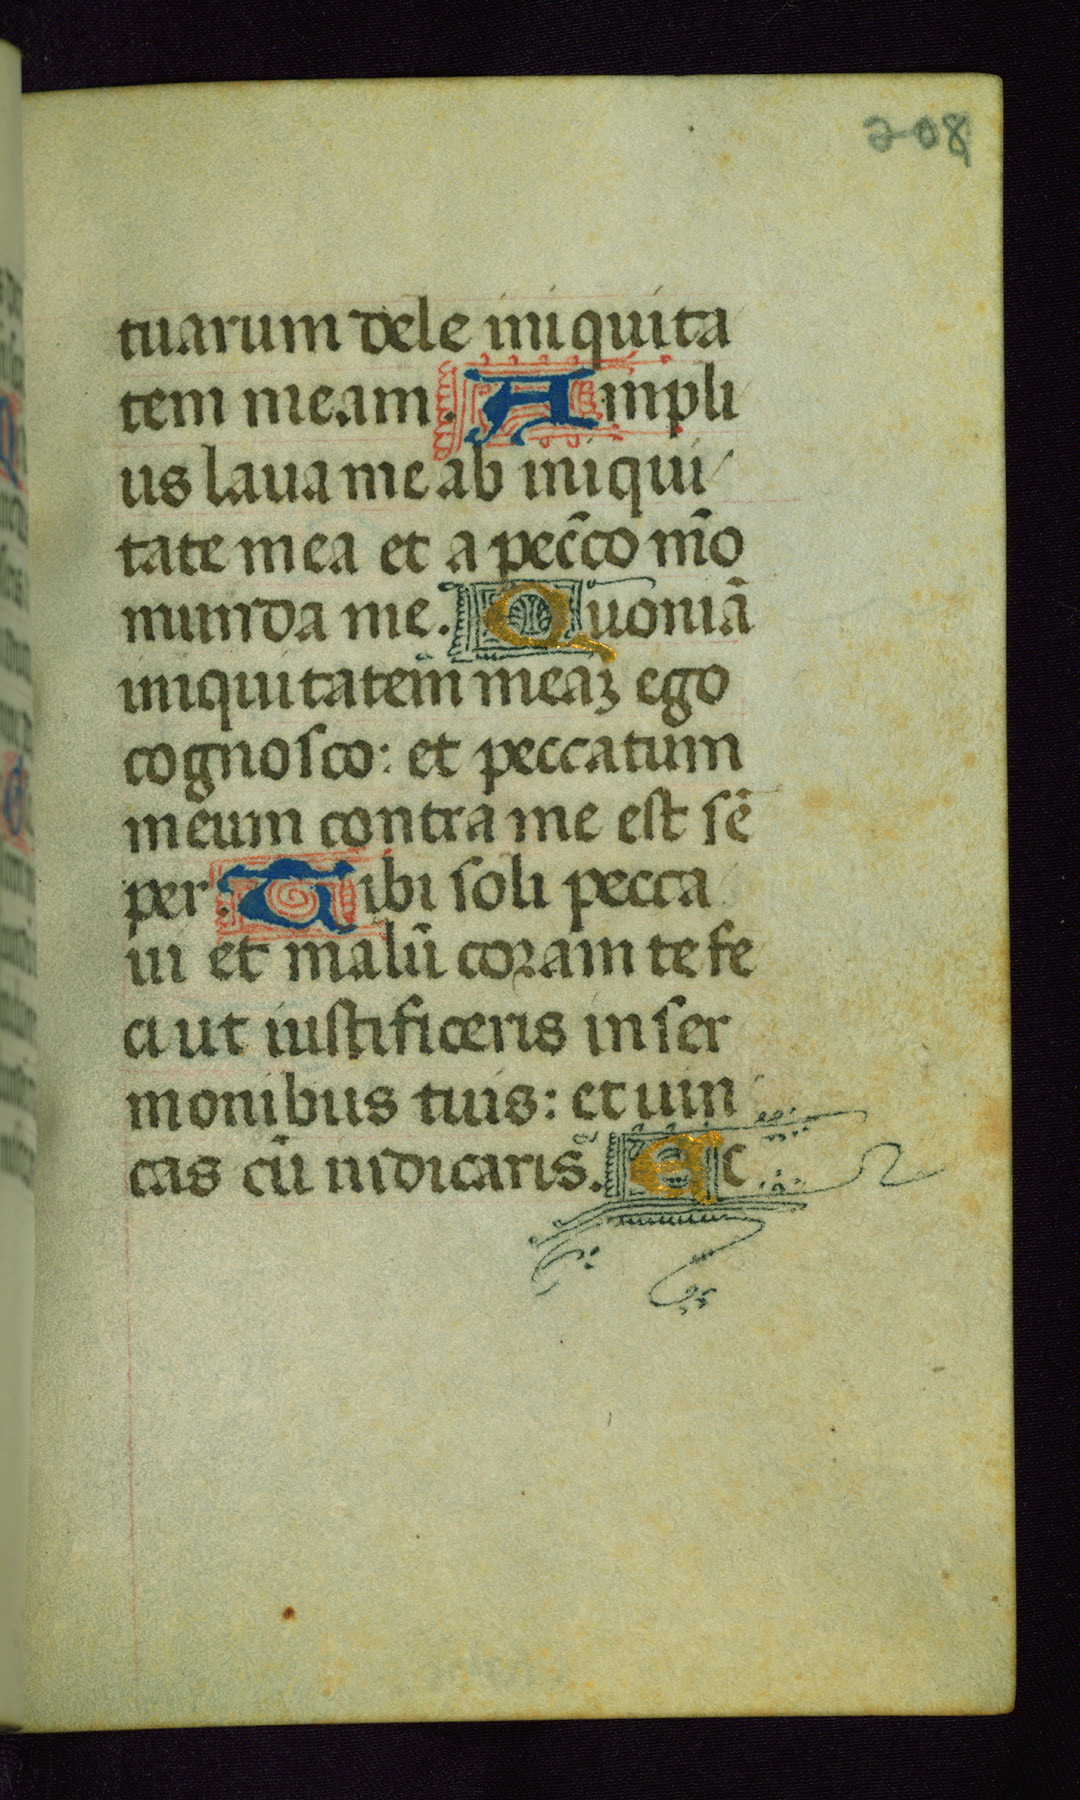 208
tuarum dele iniquita
tem meam. Ampli
us laua me ab iniqui
tate mea et a pecc̄o m̄o
munda me. Quoniā
iniquitatem meaꝫ ego
cognosco: et peccatum
meum contra me est sē
per. Tibi soli pecca
ui et malū coram te fe
ci ut iustificeris in ser
monibus tuis: et uin
cas cū iudicaris. Ec